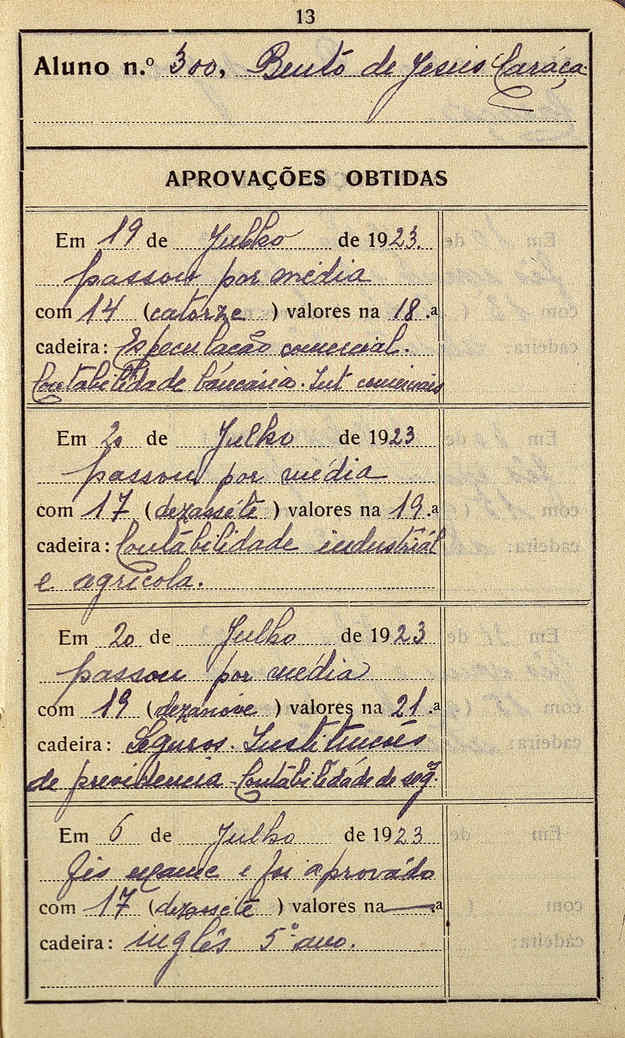 13
Aluno n.º 300, Bento de Jesus Caráça
APROVAÇÕES OBTIDAS
Em 19 de Julho de 1923.
passou por média
com 14 (catorze ) valores na 18.ª
cadeira: Especulação comercial.
Contabilidade bancária. Int comerciais
Em 20 de Julho de 1923
passou por média
com 17 (dezassete ) valores na 19.ª
cadeira: Contabilidade industrial
e agricola.
Em 20 de Julho de 1923
passou por média
com 19 (dezanove ) valores na 21.ª
cadeira: Seguros. Instituições
de previdencia - Contabilidade de seg.
Em 6 de Julho de 1923
fês exame e foi aprovado
com 17 (dezassete ) valores na — ª
cadeira: inglês 5º ano.